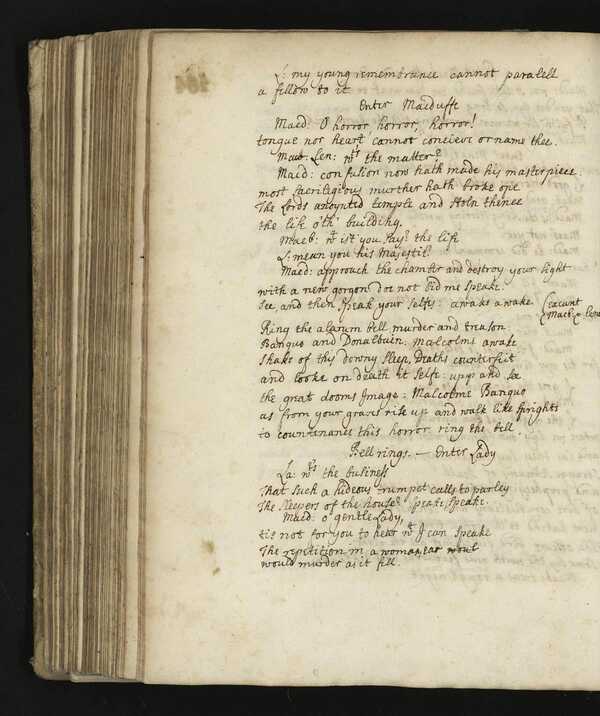 L: my young remembrance cannot paralell
a fellow to it
Enter Macduffe
Macd: O horror, horror, horror!
tongue nor heart cannot concieve or name thee.
Len: wts the matter?
Macd: confusion now hath made his masterpiece.
most sacriligious murther hath broke ope
The Lords anoynted temple and stoln thence
the life o'th' building.
Macb: wt ist you say? the life
L: mean you his Majestie?
Macd: approach the chamber and destroy your sight
with a new gorgon doe not bid me speake.
See, and then speak your selfes: awake awake
(exeunt
Macb: &
Ring the alarum bell murder and treason.
Banquo and Donalbain: Malcolme awake
Shake of this downy sleep, Deaths counterfeit
and looke on death it selfe: upp and see
the great dooms Image: Malcolme Banquo
as from your graves rise up and walk like sprights
to countenance this horror ring the bell
Bell rings. — Enter Lady
La: wts the business
That such a hideous trumpet calls to parley
The sleepers of the house? speake, speake.
Macd: o gentle Lady,
tis not for you to hear wt I can speake
The repitition in a womans ear
would murder as it fell.